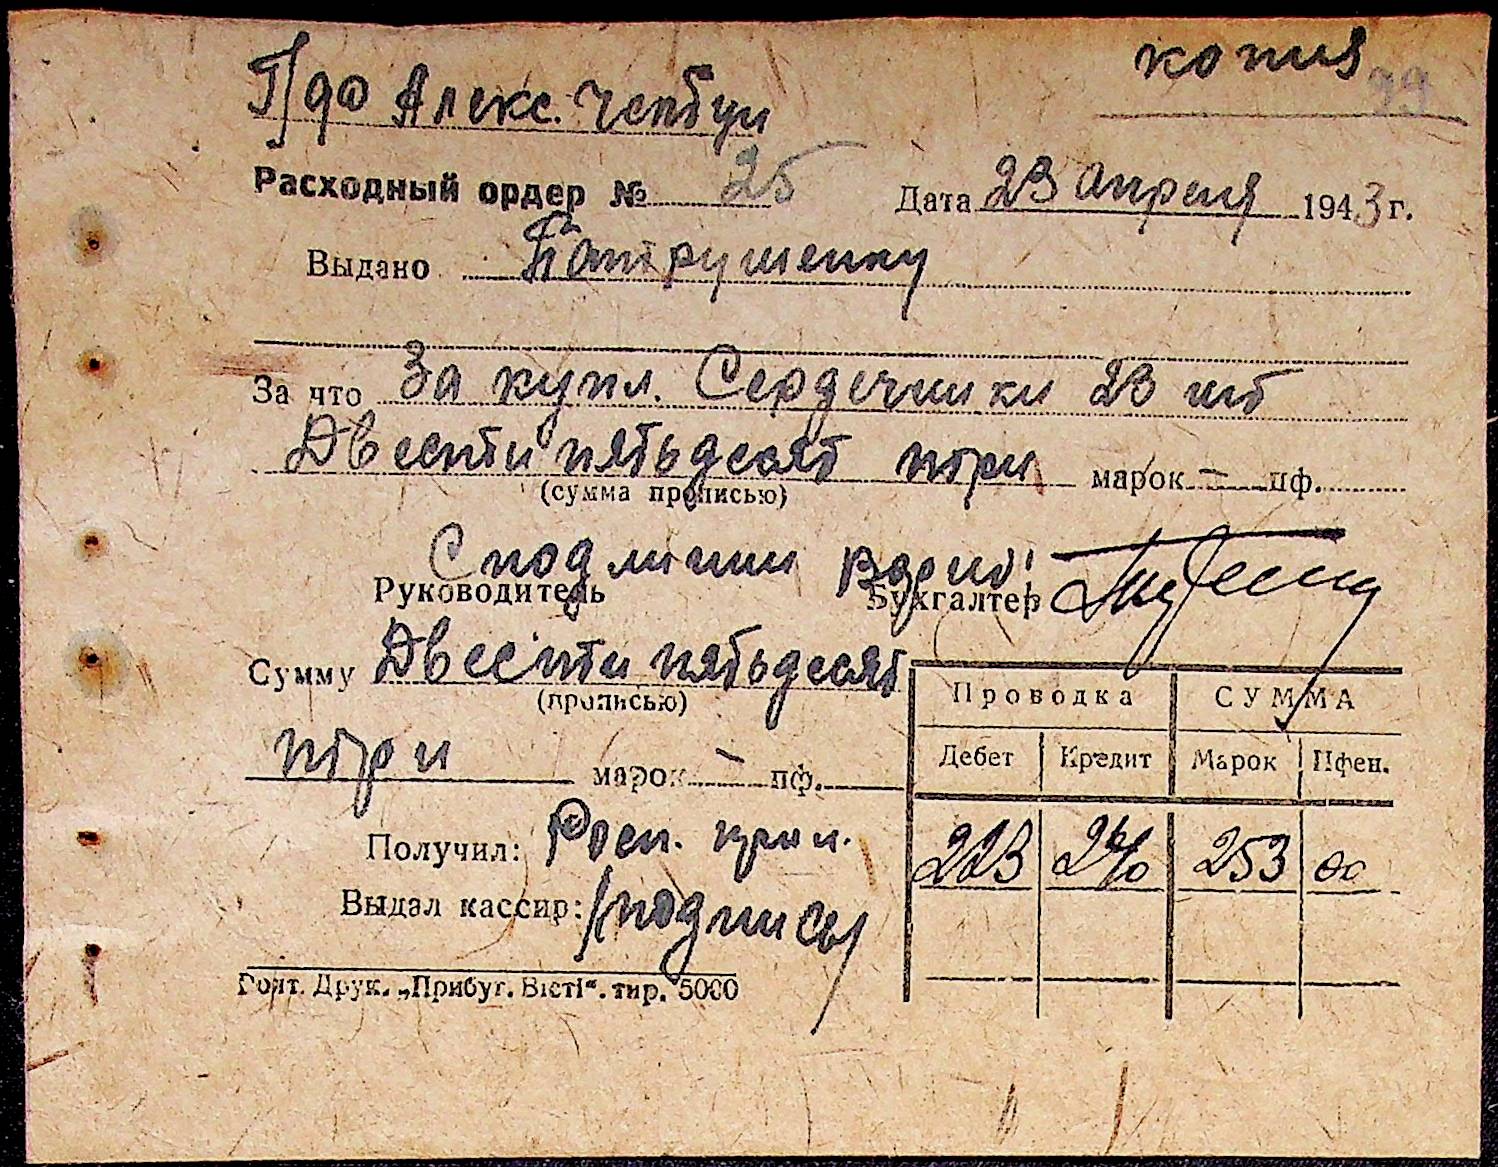 копия
99
Алекс.
Расходный ордер № 25 Дата 23 апреля 1943 г.
Выдано Патрушенку
За что За купл. Сердечники 23 шт
Двести пятьдесят три марок — пф.
(сумма прописью)
С подлинным верно:
Руководитель Бухгалтер
Сумму Двести пятьдесят
(прописью)
три марок — пф.
Проводка СУММА
Дебет Кредит Марок Пфен.
223 253 00
Получил: Росп.
Выдал кассир: /подпись/
Друк. „Прибуг. Вісті“. тир. 5000